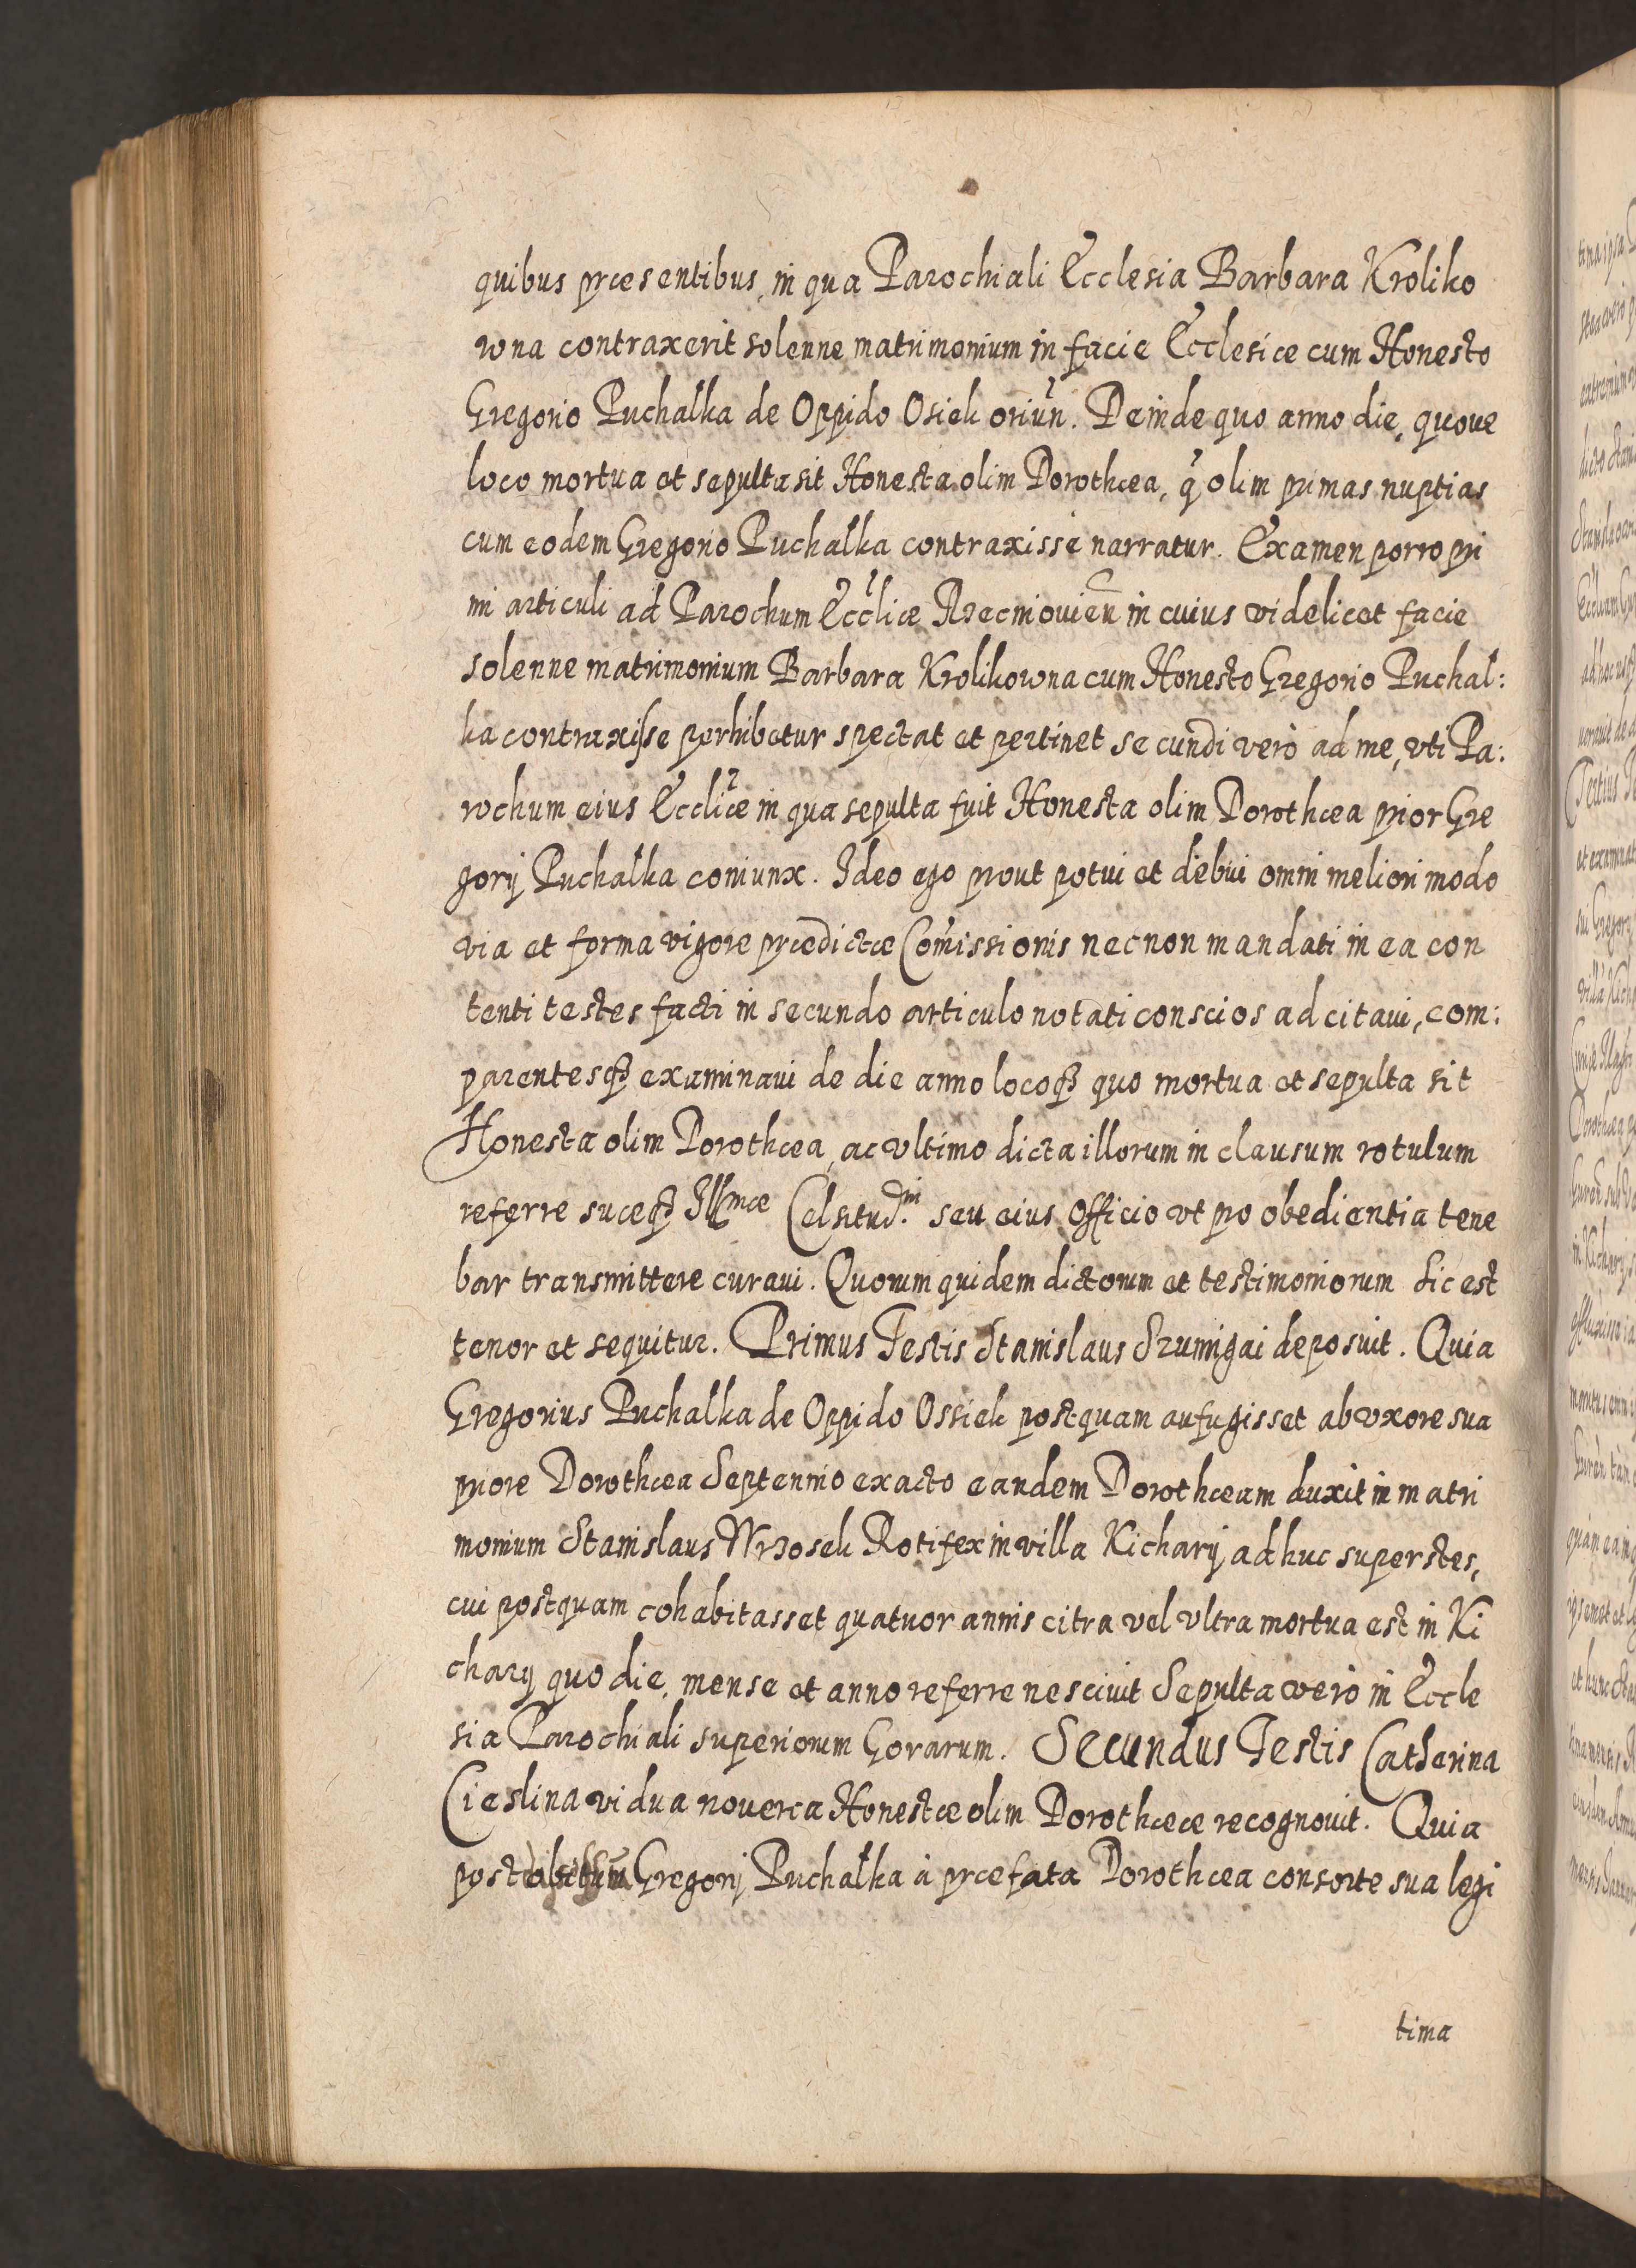 quibus præsentibus, in qua Parochiali Ecclesia Barbara Kroliko
wna contraxerit solenne matrimonium in facie Ecclesiæ cum Honesto
Gregorio Puchałka de Oppido Osiek oriun. Deinde quo anno die, quove
loco mortua et sepulta sit Honesta olim Dorothæa, q olim primas nuptias
cum eodem Gregorio Puchałka contraxisse narratur. Examen porro pri
mi articuli ad Parochum Eccliæ Rzecmiouien in cuius videlicet facie
solenne matrimonium Barbara Krolikowna cum Honesto Gregorio Puchal:
ka contraxisse perhibetur spectat et pertinet secundi verò ad me, vti Pa:
rochum eius Eccliæ in qua sepulta fuit Honesta olim Dorothæa prior Gre
gorij Puchałka coniunx. Ideo ego prout potui et debui omni meliori modo
via et forma vigore prædictæ Comissionis necnon mandati in ea con
tenti testes facti in secundo articulo notati conscios adcitaui, com:
parentesq examinaui de die anno locoq quo mortua et sepulta sit
Honesta olim Dorothæa, ac vltimo dicta illorum in clausum rotulum
referre suæq Illmæ Celsitud.ni seu eius Officio vt pro obedientia tene
bar transmittere curaui. Quorum quidem dictorum et testimoniorum sic est
tenor et sequitur. Primus Testis Stanislaus Szumigai deposuit. Quia
Gregorius Puchalka de Oppido Ossiek postquam aufugisset ab vxore sua
priore Dorothæa Septennio exacto eandem Dorothæam duxit in matri
monium Stanislaus Wrzosek Rotifex in villa Kichary adhuc superstes,
cui postquam cohabitasset quatuor annis citra vel vltra mortua est in Ki
chary quo die, mense et anno referre nesciuit Sepulta verò in Eccle
sia Parochiali superiorum Gorarum. Secundus Testis Catherina
Cieslina vidua nouerca Honestæ olim Dorothææ recognouit. Quia
post Gregorij Puchałka à præfata Dorothæa consorte sua legi
tima